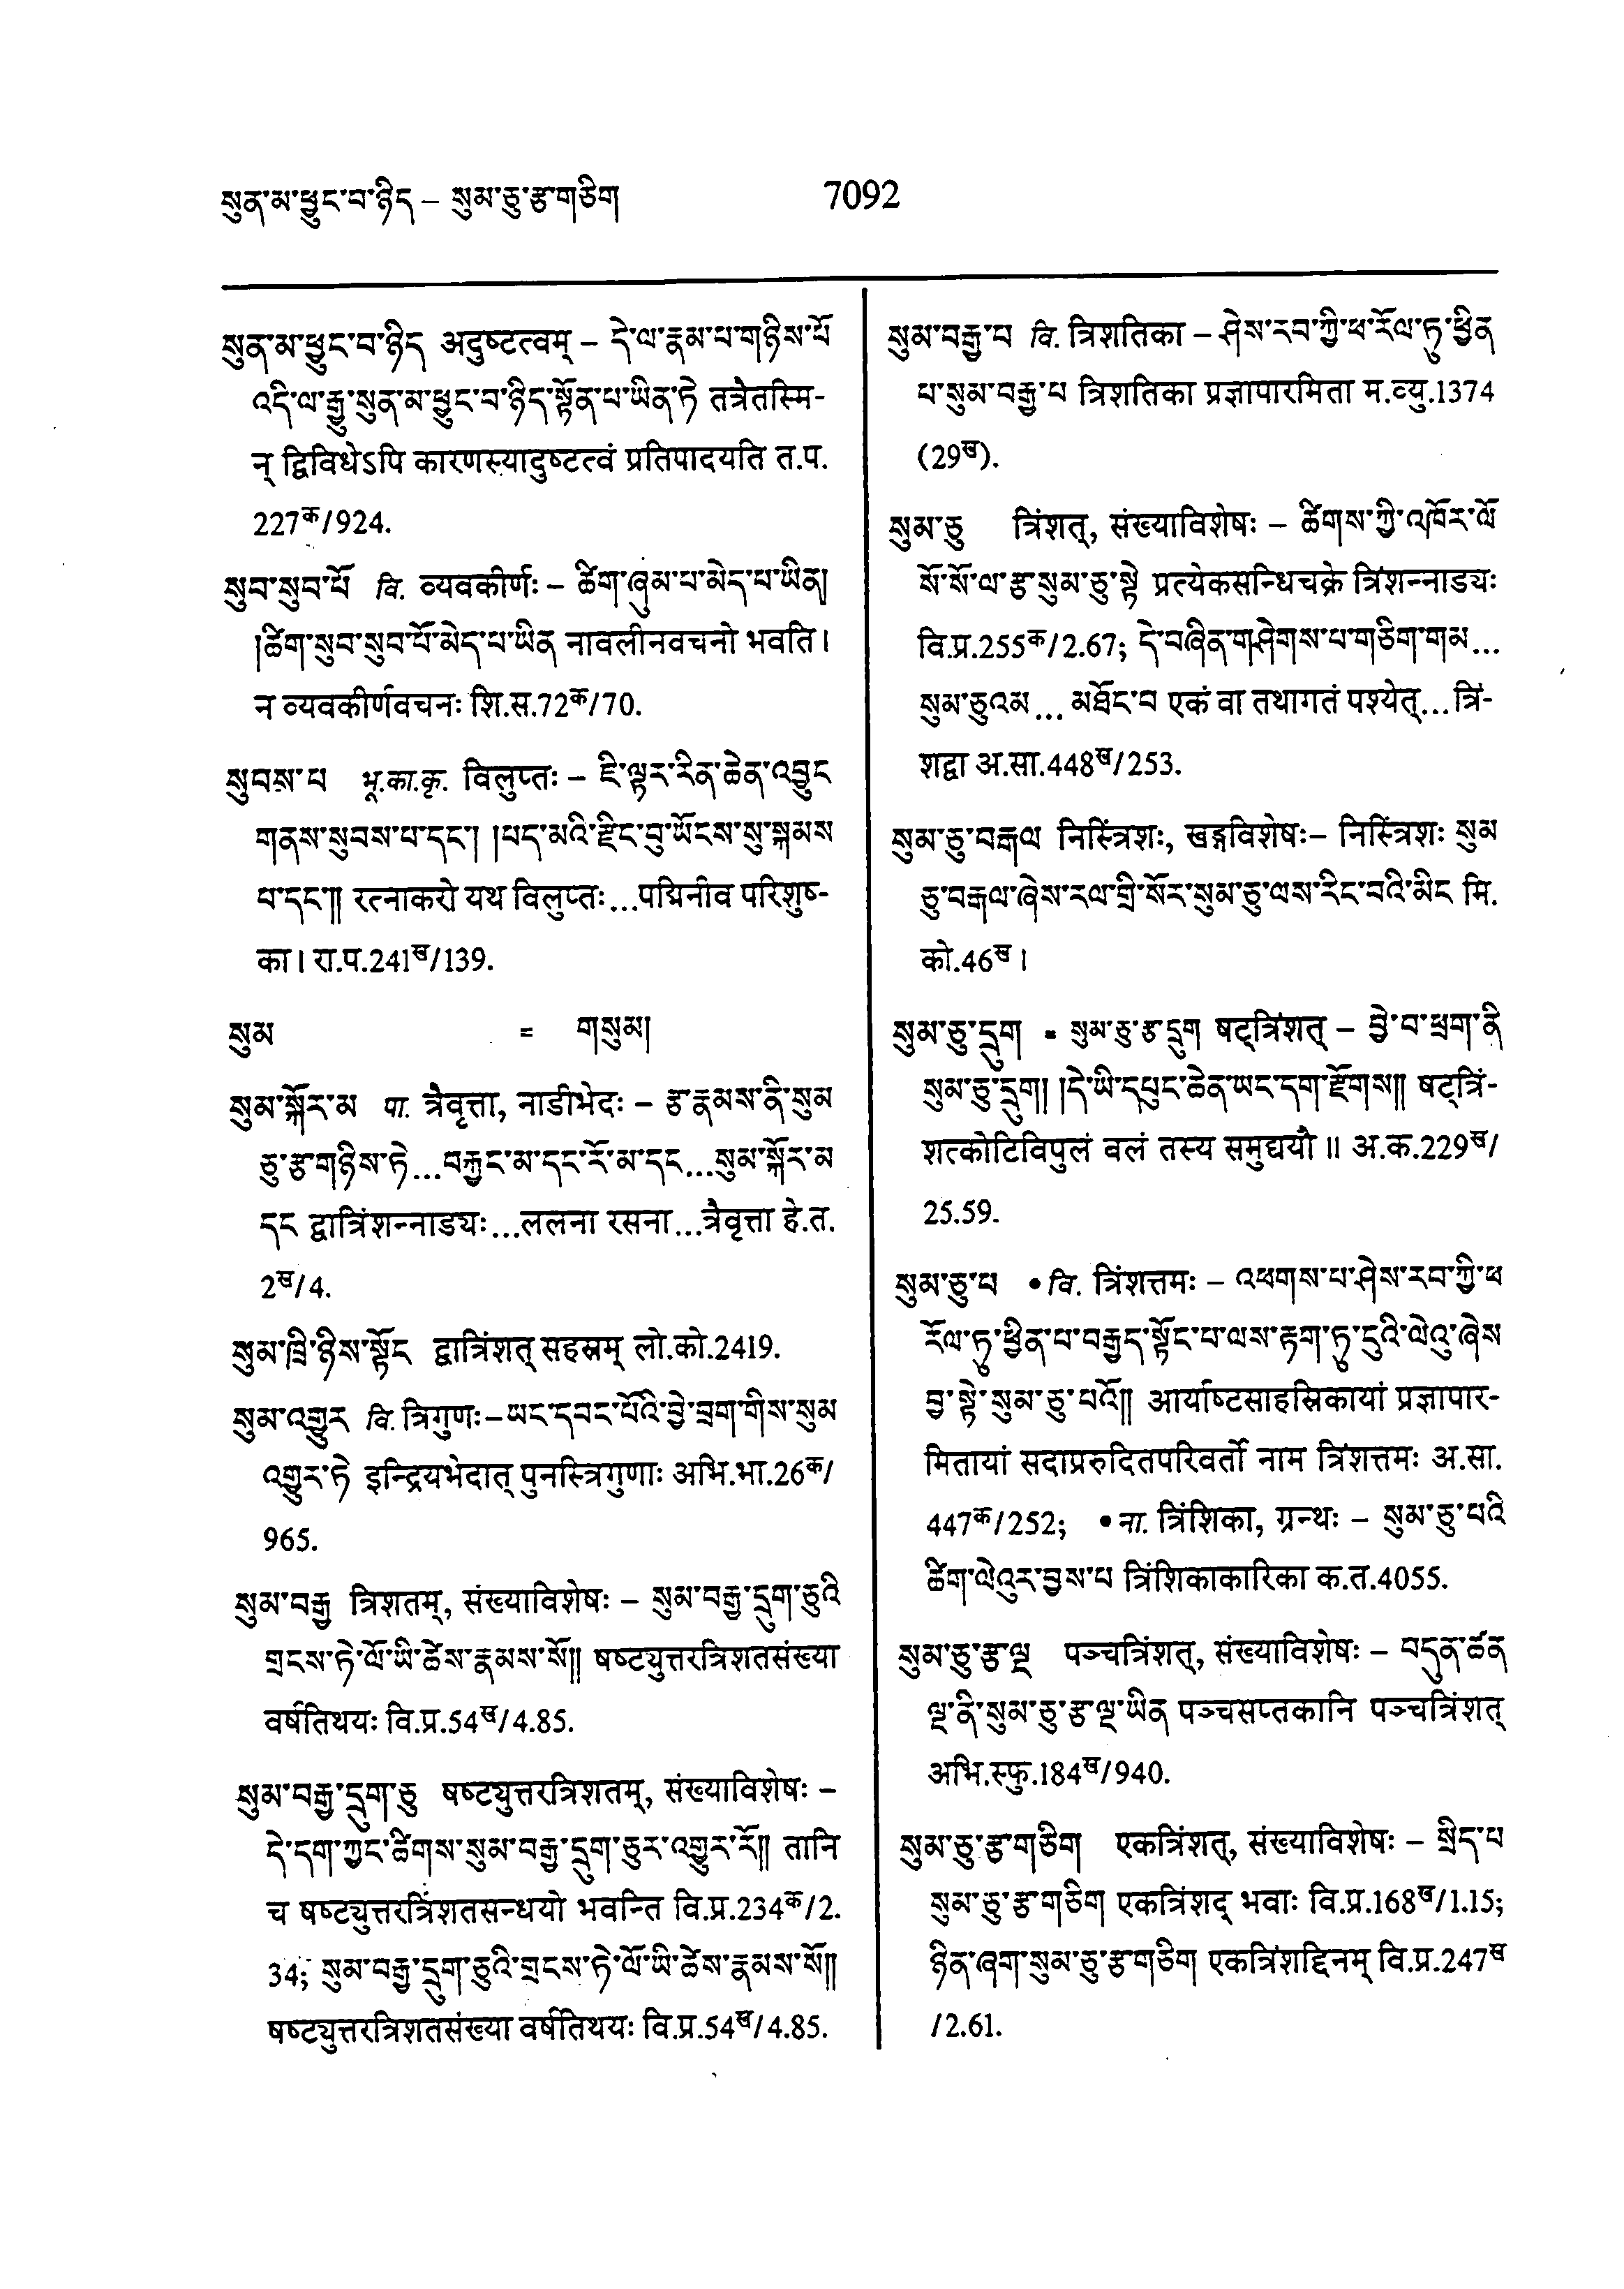 སུན་མ་ཕྱུང་བ་ཉིད – སུམ་ཅུ་རྩ་གཅིག
7092
སུན་མ་ཕྱུང་བ་ཉིད अदुष्टत्वम् – དེ་ལ་རྣམ་པ་གཉིས་པོ
འདི་ལ་རྒྱུ་སུན་མ་ཕྱུང་བ་ཉིད་སྟོན་པ་ཡིན་ཏེ तत्रैतस्मि-
न् द्विविधेऽपि कारणस्यादुष्टत्वं प्रतिपादयति त.प.
227क/924.
སུབ་སུབ་པོ वि. व्यवकीर्णः – ཚིག་ཞུམ་པ་མེད་པ་ཡིན།
།ཚིག་སུབ་སུབ་པོ་མེད་པ་ཡིན नावलीनवचनो भवति।
न व्यवकीर्णवचनः शि.स.72क/70.
སུབས་པ भू.का.कृ. विलुप्तः – ཇི་ལྟར་རིན་ཆེན་འབྱུང
གནས་སུབས་པ་དང་། །པད་མའི་རྫིང་བུ་ཡོངས་སུ་སྐམས
པ་དང་༎ रत्नाकरो यथ विलुप्तः...पद्मिनीव परिशुष्-
का। रा.प.241ख/139.
སུམ = གསུམ།
སུམ་སྐོར་མ पा. त्रैवृत्ता, नाडीभेदः – རྩ་རྣམས་ནི་སུམ
ཅུ་རྩ་གཉིས་ཏེ...བརྐྱང་མ་དང་རོ་མ་དང...སུམ་སྐོར་མ
དང द्वात्रिंशन्नाड्यः...ललना रसना...त्रैवृत्ता हे.त.
2ख/4.
སུམ་ཁྲི་ཉིས་སྟོང द्वात्रिंशत् सहस्रम् लो.को.2419.
སུམ་འགྱུར वि. त्रिगुणः – ཡང་དབང་པོའི་བྱེ་བྲག་གིས་སུམ
འགྱུར་ཏེ इन्द्रियभेदात् पुनस्त्रिगुणाः अभि.भा.26क/
965.
སུམ་བརྒྱ त्रिशतम्, संख्याविशेषः – སུམ་བརྒྱ་དྲུག་ཅུའི
གྲངས་ཏེ་ལོ་ཡི་ཚེས་རྣམས་སོ༎ षष्ट्युत्तरत्रिशतसंख्या
वर्षतिथयः वि.प्र.54ख/4.85.
སུམ་བརྒྱ་དྲུག་ཅུ षष्ट्युत्तरत्रिशतम्, संख्याविशेषः –
དེ་དག་ཀྱང་ཚིགས་སུམ་བརྒྱ་དྲུག་ཅུར་འགྱུར་རོ༎ तानि
च षष्ट्युत्तरत्रिंशतसन्धयो भवन्ति वि.प्र.234क/2.
34; སུམ་བརྒྱ་དྲུག་ཅུའི་གྲངས་ཏེ་ལོ་ཡི་ཚེས་རྣམས་སོ༎
षष्ट्युत्तरत्रिशतसंख्या वर्षतिथयः वि.प्र.54ख/4.85.
སུམ་བརྒྱ་པ वि. त्रिशतिका – ཤེས་རབ་ཀྱི་ཕ་རོལ་ཏུ་ཕྱིན
པ་སུམ་བརྒྱ་པ त्रिशतिका प्रज्ञापारमिता म.व्यु.1374
(29ख).
སུམ་ཅུ त्रिंशत्, संख्याविशेषः – ཚིགས་ཀྱི་འཁོར་ལོ
སོ་སོ་ལ་རྩ་སུམ་ཅུ་སྟེ प्रत्येकसन्धिचक्रे त्रिंशन्नाड्यः
वि.प्र.255क/2.67; དེ་བཞིན་གཤེགས་པ་གཅིག་གམ...
སུམ་ཅུའམ... མཐོང་བ एकं वा तथागतं पश्येत्...त्रिं-
शद्वा अ.सा.448ख/253.
སུམ་ཅུ་བརྒལ निस्त्रिंशः, खड्गविशेषः – निस्त्रिंशः སུམ
ཅུ་བརྒལ་ཞེས་རལ་གྲི་སོར་སུམ་ཅུ་ལས་རིང་བའི་མིང मि.
को.46ख।
སུམ་ཅུ་དྲུག = སུམ་ཅུ་རྩ་དྲུག षट्त्रिंशत् – བྱེ་བ་ཕྲག་ནི
སུམ་ཅུ་དྲུག། །དེ་ཡི་དཔུང་ཆེན་ཡང་དག་རྫོགས༎ षट्त्रिं-
शत्कोटिविपुलं वलं तस्य समुद्ययौ॥ अ.क.229ख/
25.59.
སུམ་ཅུ་པ • वि. त्रिंशत्तमः – འཕགས་པ་ཤེས་རབ་ཀྱི་ཕ
རོལ་ཏུ་ཕྱིན་པ་བརྒྱད་སྟོང་པ་ལས་རྟག་ཏུ་ངུའི་ལེའུ་ཞེས
བྱ་སྟེ་སུམ་ཅུ་པའོ༎ आर्याष्टसाहस्रिकायां प्रज्ञापार-
मितायां सदाप्ररुदितपरिवर्तो नाम त्रिंशत्तमः अ.सा.
447क/252; • ना. त्रिंशिका, ग्रन्थः – སུམ་ཅུ་པའི
ཚིག་ལེའུར་བྱས་པ त्रिंशिकाकारिका क.त.4055.
སུམ་ཅུ་རྩ་ལྔ पञ्चत्रिंशत्, संख्याविशेषः – བདུན་ཚན
ལྔ་ནི་སུམ་ཅུ་རྩ་ལྔ་ཡིན पञ्चसप्तकानि पञ्चत्रिंशत्
अभि.स्फु.184ख/940.
སུམ་ཅུ་རྩ་གཅིག एकत्रिंशत्, संख्याविशेषः – སྲིད་པ
སུམ་ཅུ་རྩ་གཅིག एकत्रिंशद् भवाः वि.प्र.168ख/1.15;
ཉིན་ཞག་སུམ་ཅུ་རྩ་གཅིག एकत्रिंशद्दिनम् वि.प्र.247ख
/2.61.